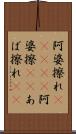 阿婆擦れ
阿
婆擦あ
ば擦れ